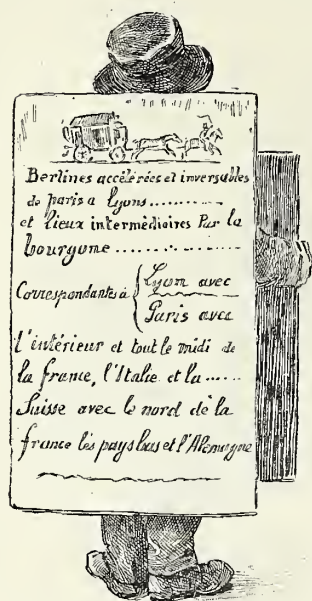 Berlines accélérées et inversables
de paris a lyons...........
et lieux intermédiaires Par la
bourgone ..................
Correspondantes à { Lyon avec
Paris avec
l'intérieur et tout le midi de
la france, l'Italie et la ......
Suisse avec le nord de la
france les pays bas et l'Alemagne